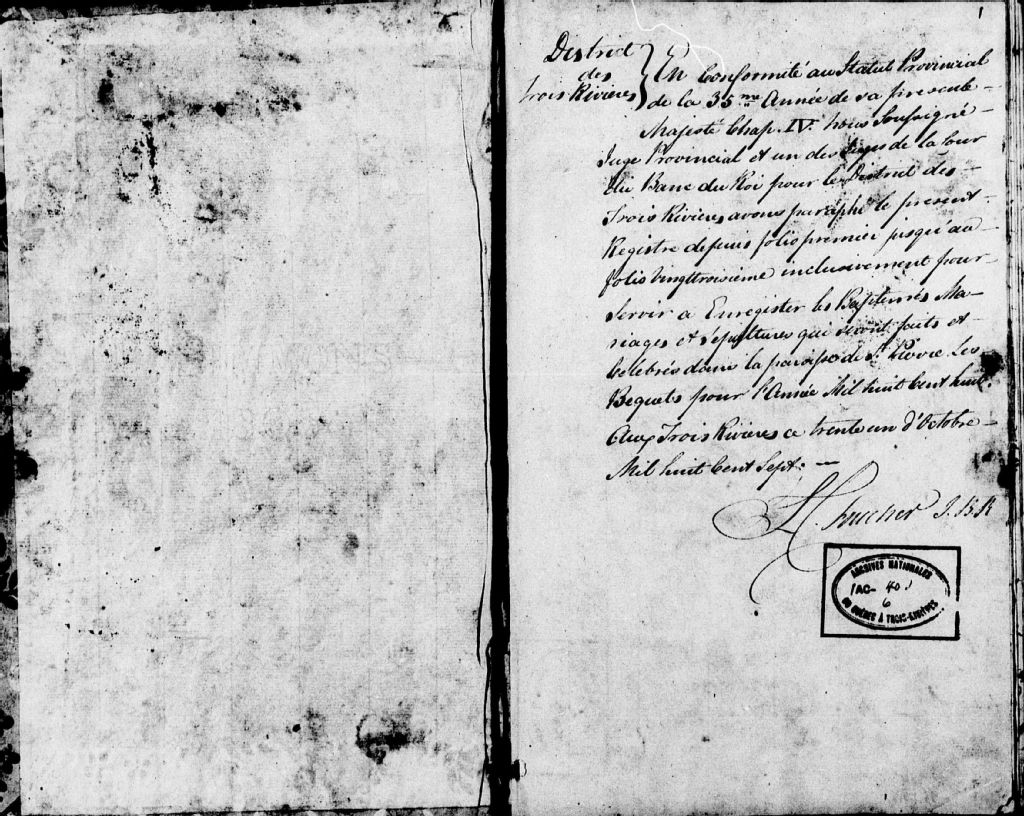 1
District
des
Trois Rivieres
En Conformité au Statut Provincial
de la 35.me Année de sa presente
Majesté Chap. IV. nous Soussigné
Juge Provincial et un des Juges de la Cour
du Banc du Roi pour le District des
Trois Rivieres avons paraphé le present
Registre depuis folio premier jusqu'au
folio Vingttroisieme inclusivement pour
Servir a Enregister les Baptemes Ma-
riages et Sépultures qui seront faits et
Celébrés dans la paroisse de St. Pierre Les
Bequets pour l'Année Mil huit Cent huit.
Aux Trois Rivieres ce trente un d'Octobre
Mil huit Cent Sept. —
J. B. R
ARCHIVES NATIONALES
1AC- 40
6
DU QUÉBEC À TROIS-RIVIÈRES